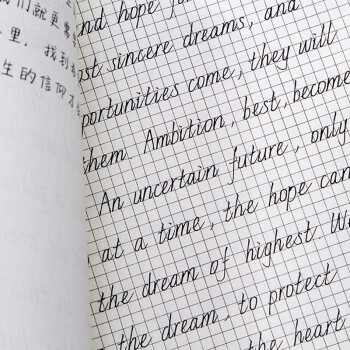 们就更需
里，找到
生的信仰
and hope fo
st sincere dreams, and
portunities come, they will
them. Ambition, best, become
An uncertain future, only
at a time, the hope can
the dream of highest. W
the dream, to protect
the heart